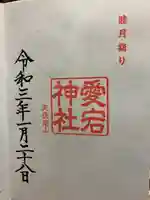 睦月詣り
愛宕
神社
令和三年一月二十八日